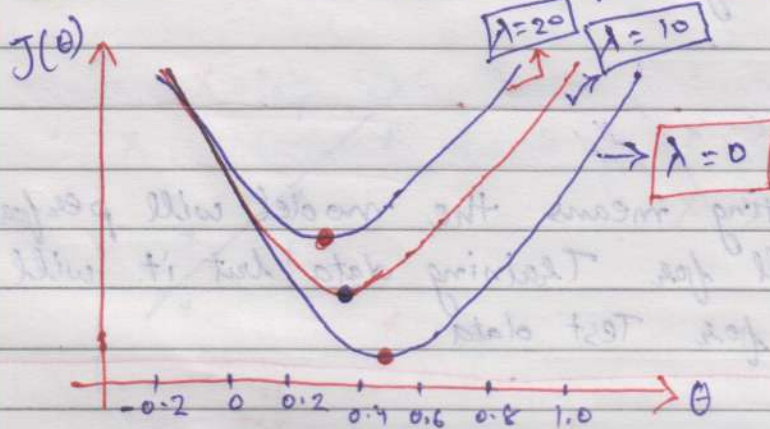 J(θ)
λ=20
λ=10
λ=0
-0.2 0 0.2 0.4 0.6 0.8 1.0 θ